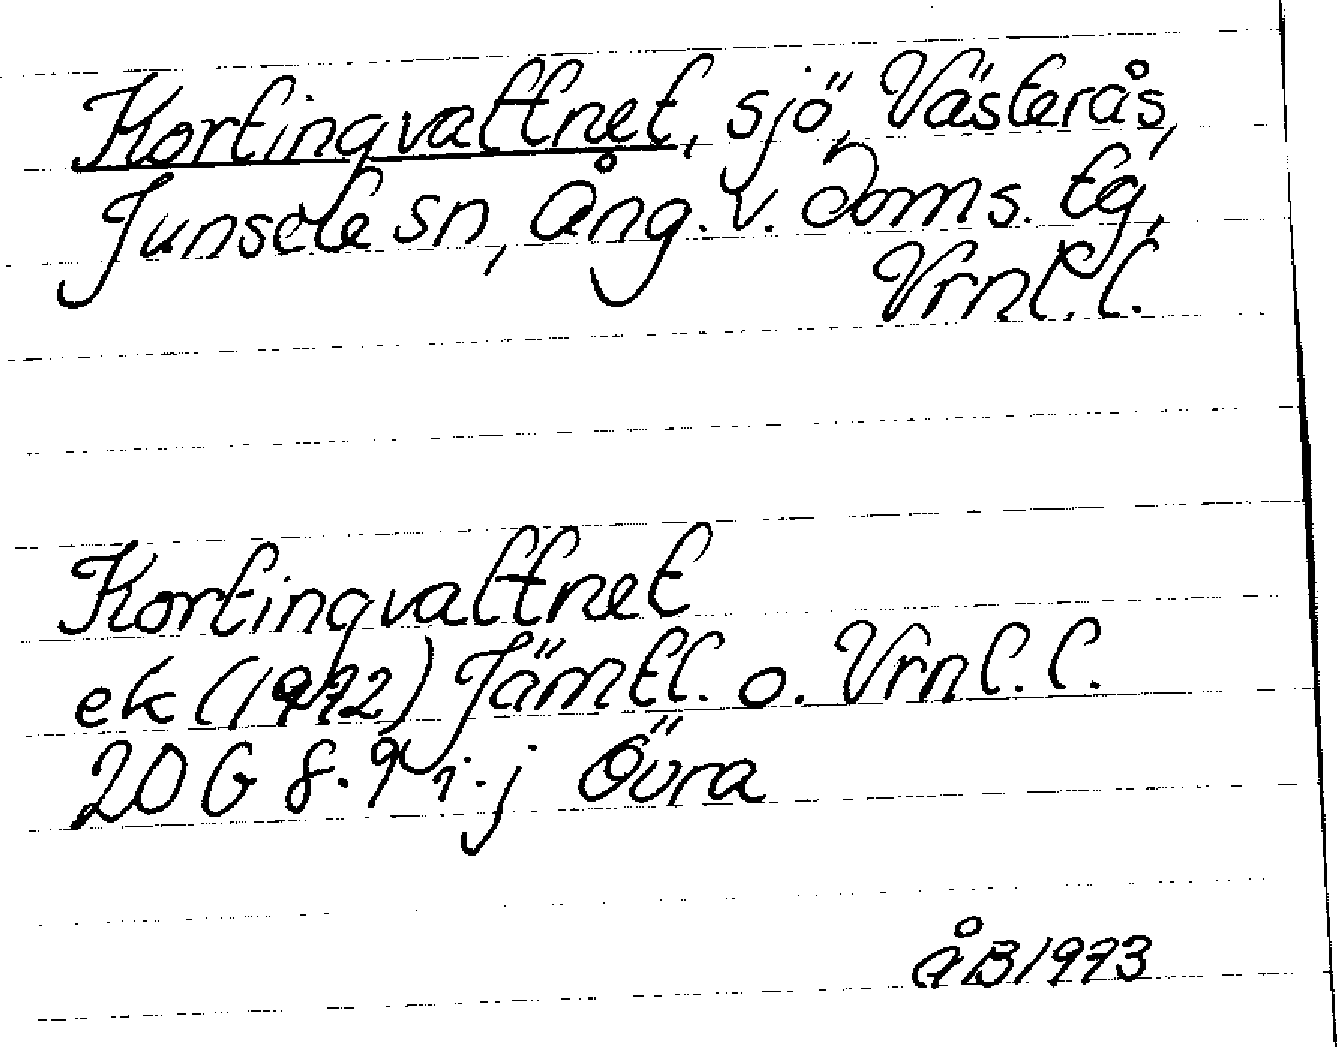 Kortingvattnet, sjö, Västerås,
Junsele sn, Ång. v. doms. tg,
Vrnl. l.
Kortingvattnet
ek (1972) Jämtl. o. Vrnl. l.
20 G 8-9 i-j Övra
ÅB 1973